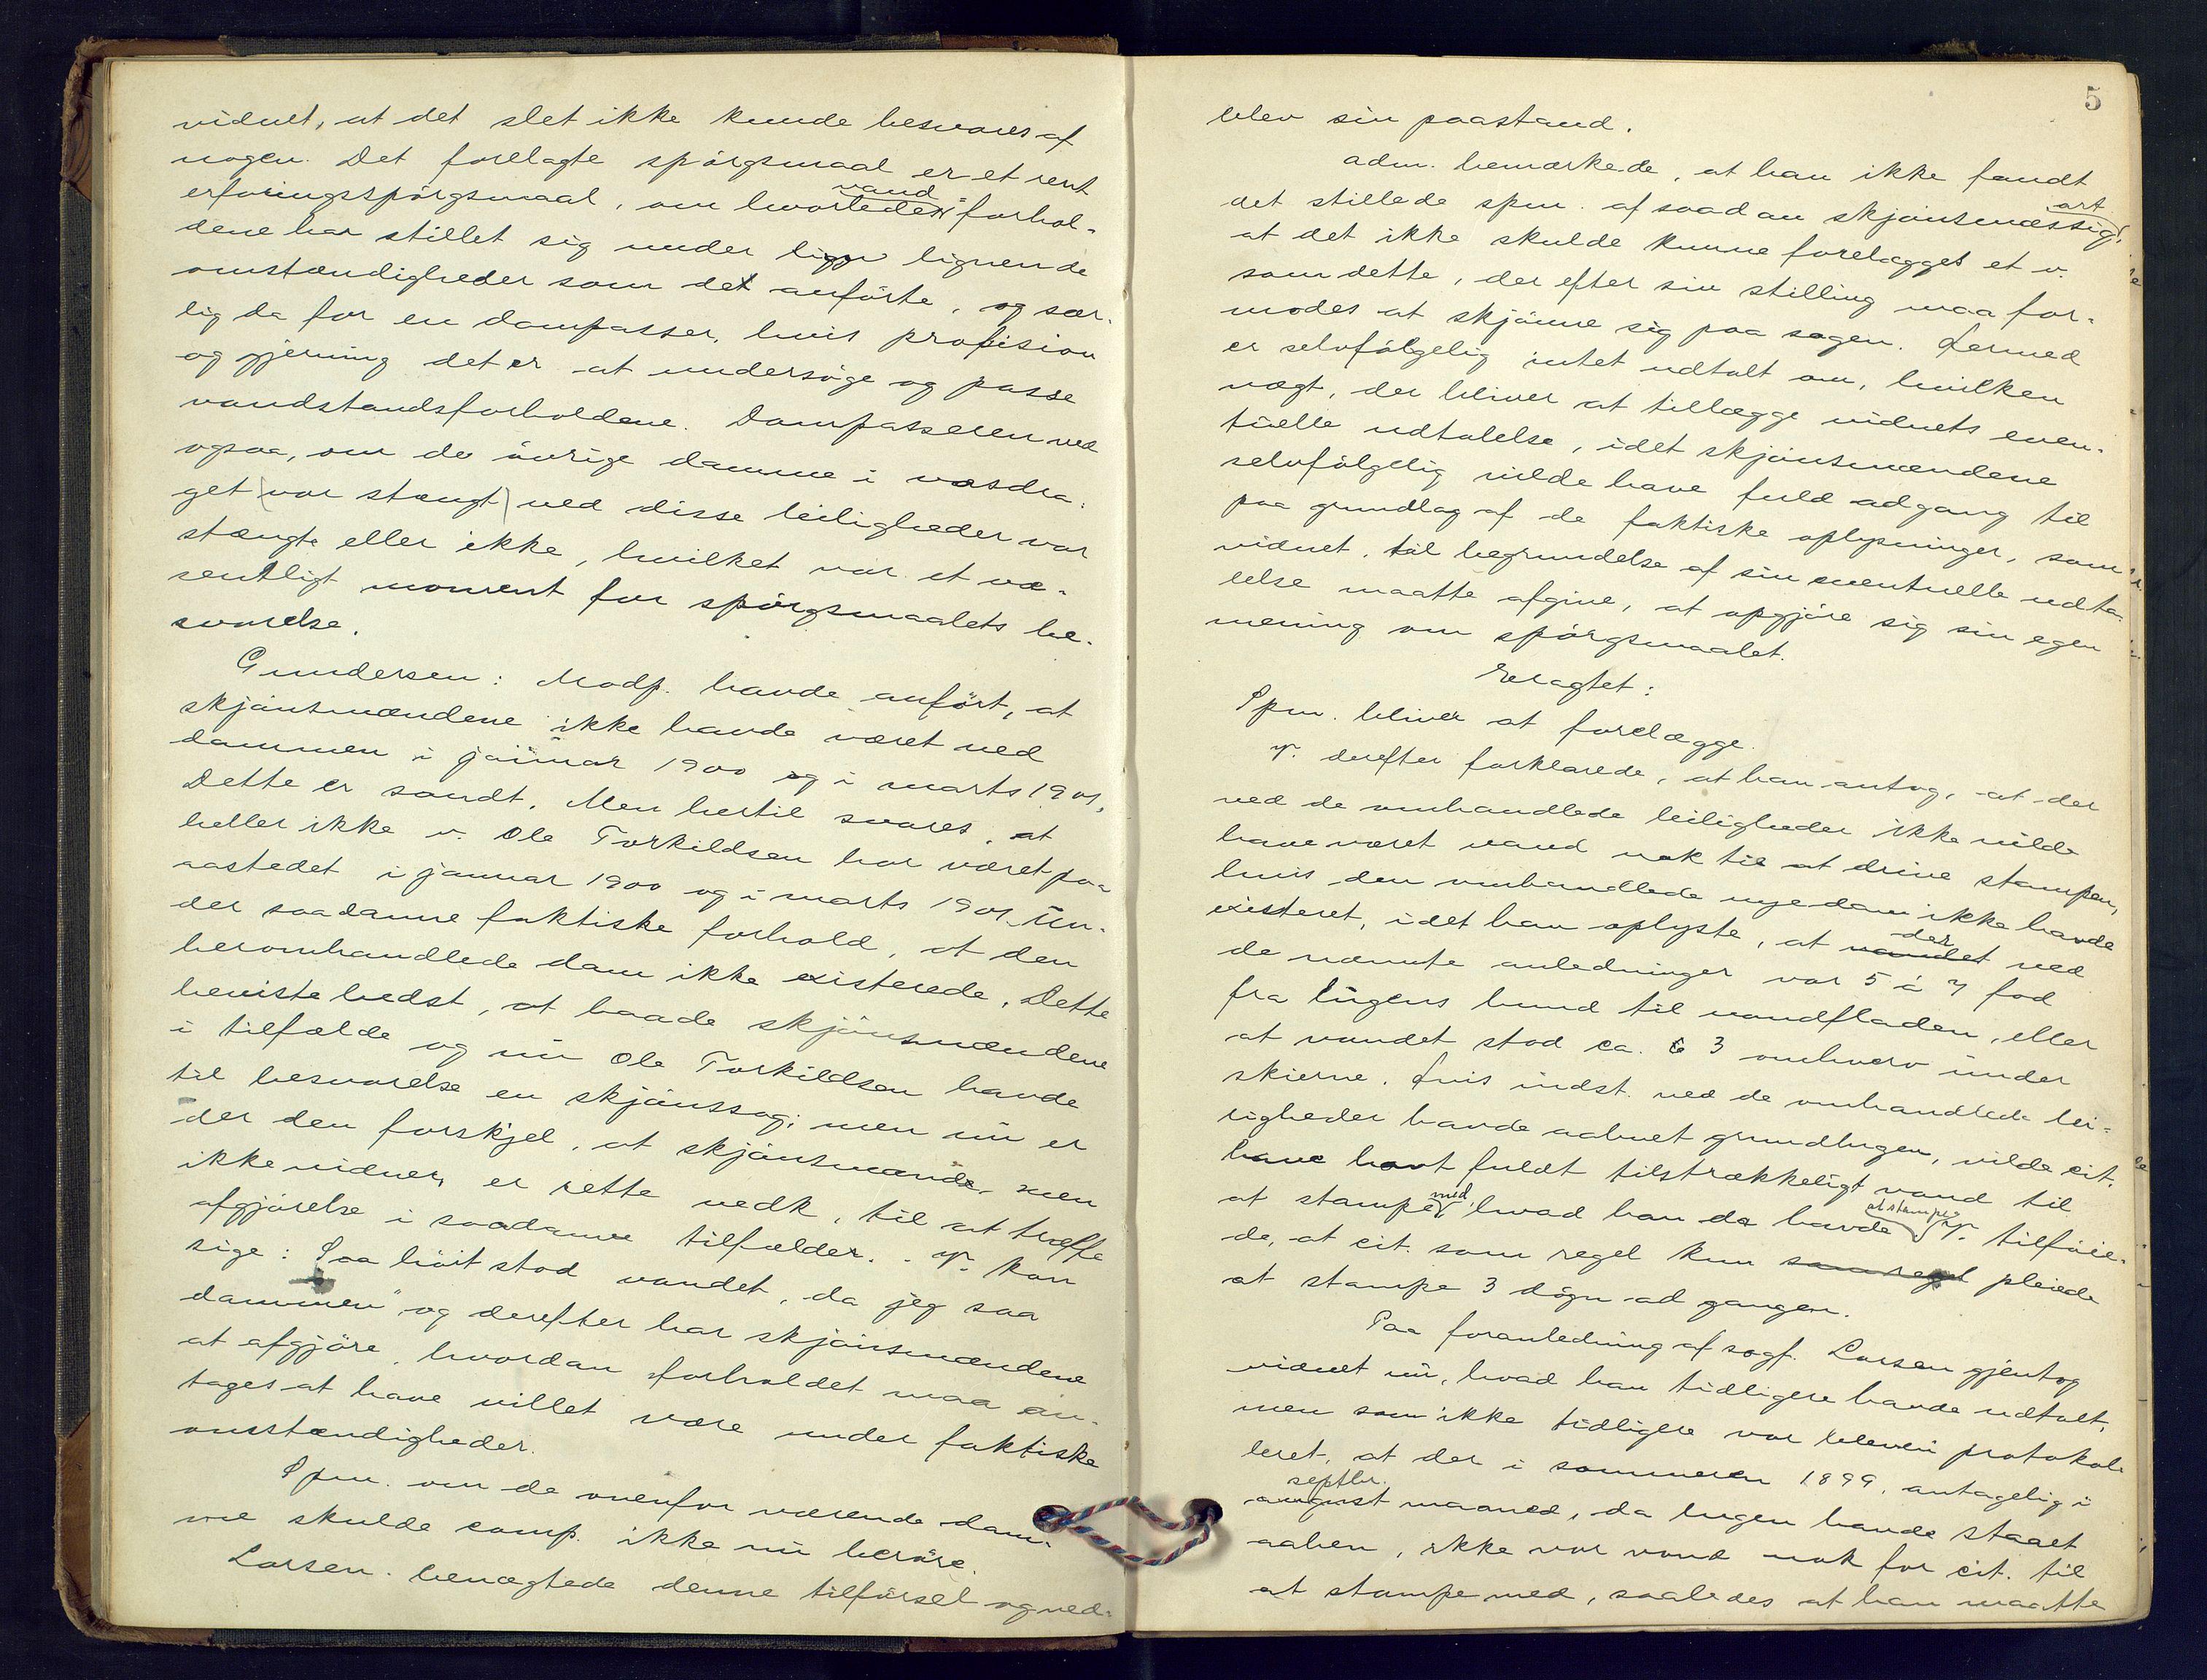 vidnet, at det slet ikke kunde besvares af
nogen. Det forelagte spörgsmaal er et rent
vand
erfaringsspörgsmaal, om hvorledes forhol-
dene har stillet sig under ligge lignende
omstændigheder som det anförte, og sær-
lig da for en dampasser, hvis profision
og gjerning det er at undersöge og passe
vandstandsforholdene. Dampasseren ved
ogsaa, om de övrige damme i vasdra-
get (var stængt) ved disse leiligheder var
stængte eller ikke, hvilket var et væ-
sentligt moment for spörgsmaalets be-
svarelse.
Gundersen: Modp. havde anfört, at
skjönsmændene ikke havde været ved
dammen i januar 1900 og i marts 1901,
Dette er sandt. Men hertil svares, at
heller ikke v. Ole Torkildsen har været paa
aastedet i januar 1900 og i marts 1901 un-
der saadanne faktiske forhold, at den
heromhandlede dam ikke existerede. Dette
beviste bedst, at baade skjönsmændene
i tilfælde og nu Ole Torkildsen havde
til besvarelse en skjönssag; men nu er
der den forskjel, at skjönsmænd, men
ikke vidner, er rette vedk. til at træffe
afgjörelse i saadanne tilfælder. - V. kan
sige: Saa höit stod vandet, da jeg saa
dammen" og derefter har skjönsmændene
at afgjöre, hvordan forholdet maa an-
tages at have villet være under faktiske
omstændigheder.
Spm. om de ovenfor værende dam-
me skulde comp. ikke nu beröre.
Larsen benægtede denne tilförsel og ved-
5
blev sin paastand.
Adm. bemærkede, at han ikke fandt
art
det stillede spm. af saadan skjönsmæssig,
at det ikke skulde kunne forelægges et v.
som dette, der efter sin stilling maa for-
modes at skjönne sig paa sagen. Hermed
er selvfölgelig intet udtalt om, hvilken
vægt, der bliver at tillægge vidnets even-
tuelle udtalelse, idet skjönsmændene
selvfölgelig vilde have fuld adgang til
paa grundlag af de faktiske oplysninger, som
vidnet til begrundelse af sin eventuelle udta-
lelse maatte afgive, at opgjöre sig sin egen
mening om spörgsmaalet.
Eragtet:
Spm. bliver at forelægge.
V. derefter forklarede, at han antog, at der
ved de omhandlede leiligheder ikke vilde
have været vand nok til at drive stampen,
hvis den omhandlede nye dam ikke havde
existeret, idet han oplyste, at vandet ved
der
de nævnte anledninger var 5 à 7 fod
fra lugens bund til vandfladen, eller
at vandet stod ca. 3 omhverv under
skierne. Hvis indst. ved de omhandlede lei-
ligheder havde aabnet grundlugen, vilde cit.
have havt fuldt tilstrækkeligt vand til
at stampe med, hvad han da havde at stampe. V. tilföie-
de, at cit. som regel kun som regel pleiede
at stampe 3 dögn ad gangen.
Paa foranledning af sagf. Larsen gjentog
vidnet nu, hvad han tidligere havde udtalt,
men som ikke tidligere var bleven protokol-
leret, at der i sommeren 1899, antagelig i
septbr.
august maaned, da lugen havde staaet
aaben, ikke var vand nok for cit. til
at stampe med, saaledes at han maatte